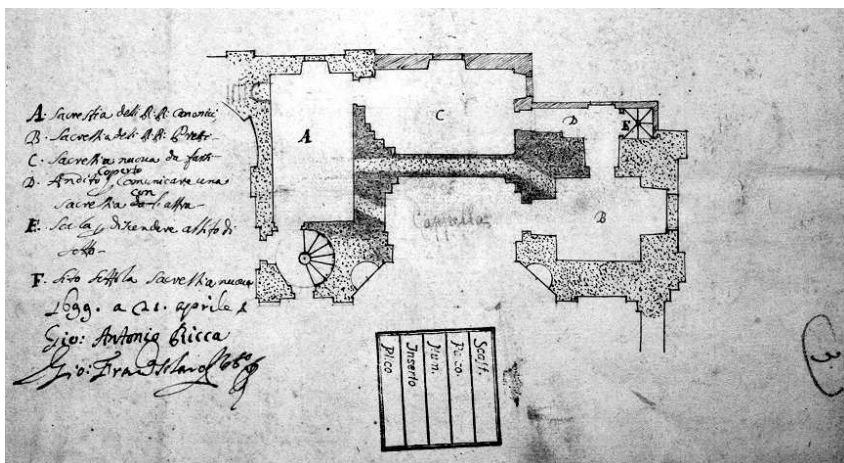 A. Sacrestia deli R.R. Canonici
B. Sacrestia deli R.R. Preti
C. Sacrestia nuova da farsi
D. Andito coperto p comunicare una
con
sacrestia da l'altra
E. Scala p discendere al sito di
sotto
F. Sito sotto la Sacrestia nuova
1699. a 21. aprile
Gio: Antonio Ricca
A
C
D
E
B
Cappella
Scaff.
Pacco.
Num.
Inserto
Plico
3